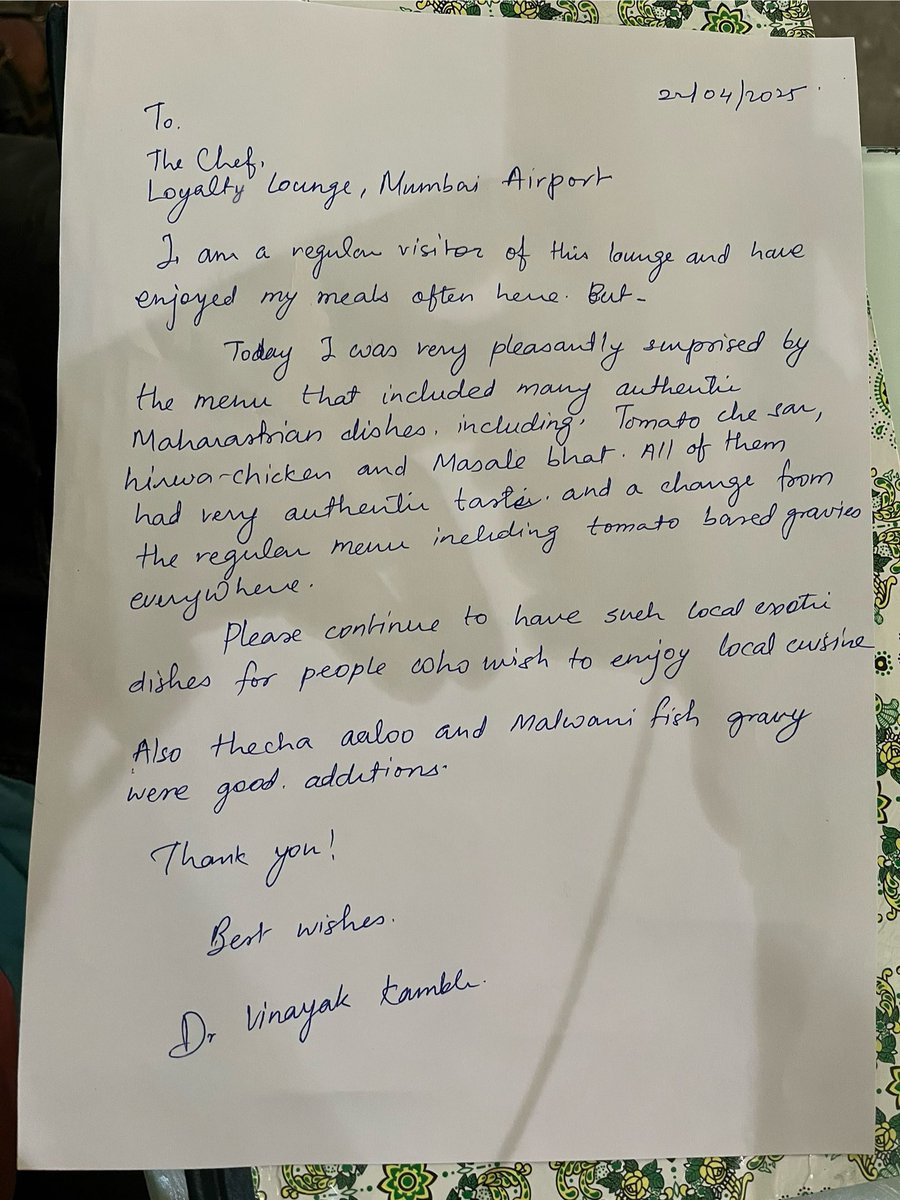 22/04/2025
To.
The Chef,
Loyalty Lounge, Mumbai Airport
I am a regular visitor of this lounge and have
enjoyed my meals often here. But-
Today I was very pleasantly surprised by
the menu that included many authentic
Maharastrian dishes. including. Tomato che sar,
hirwa-chicken and Masale bhat. All of them
had very authentic taste. and a change from
the regular menu including tomato based gravies
everywhere.
Please continue to have such local exotic
dishes for people who wish to enjoy local cuisine
Also thecha aaloo and Malwani fish gravy
were good. additions.
Thank you!
Best wishes.
Dr Vinayak Kamble.